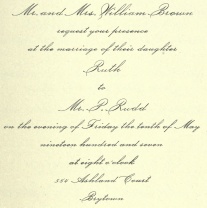 Mr. and Mrs. William Brown
request your presence
at the marriage of their daughter
Ruth
to
Mr. P. Rudd
on the evening of Friday the tenth of May
nineteen hundred and seven
at eight o'clock
354 Ashland Court
Brytown